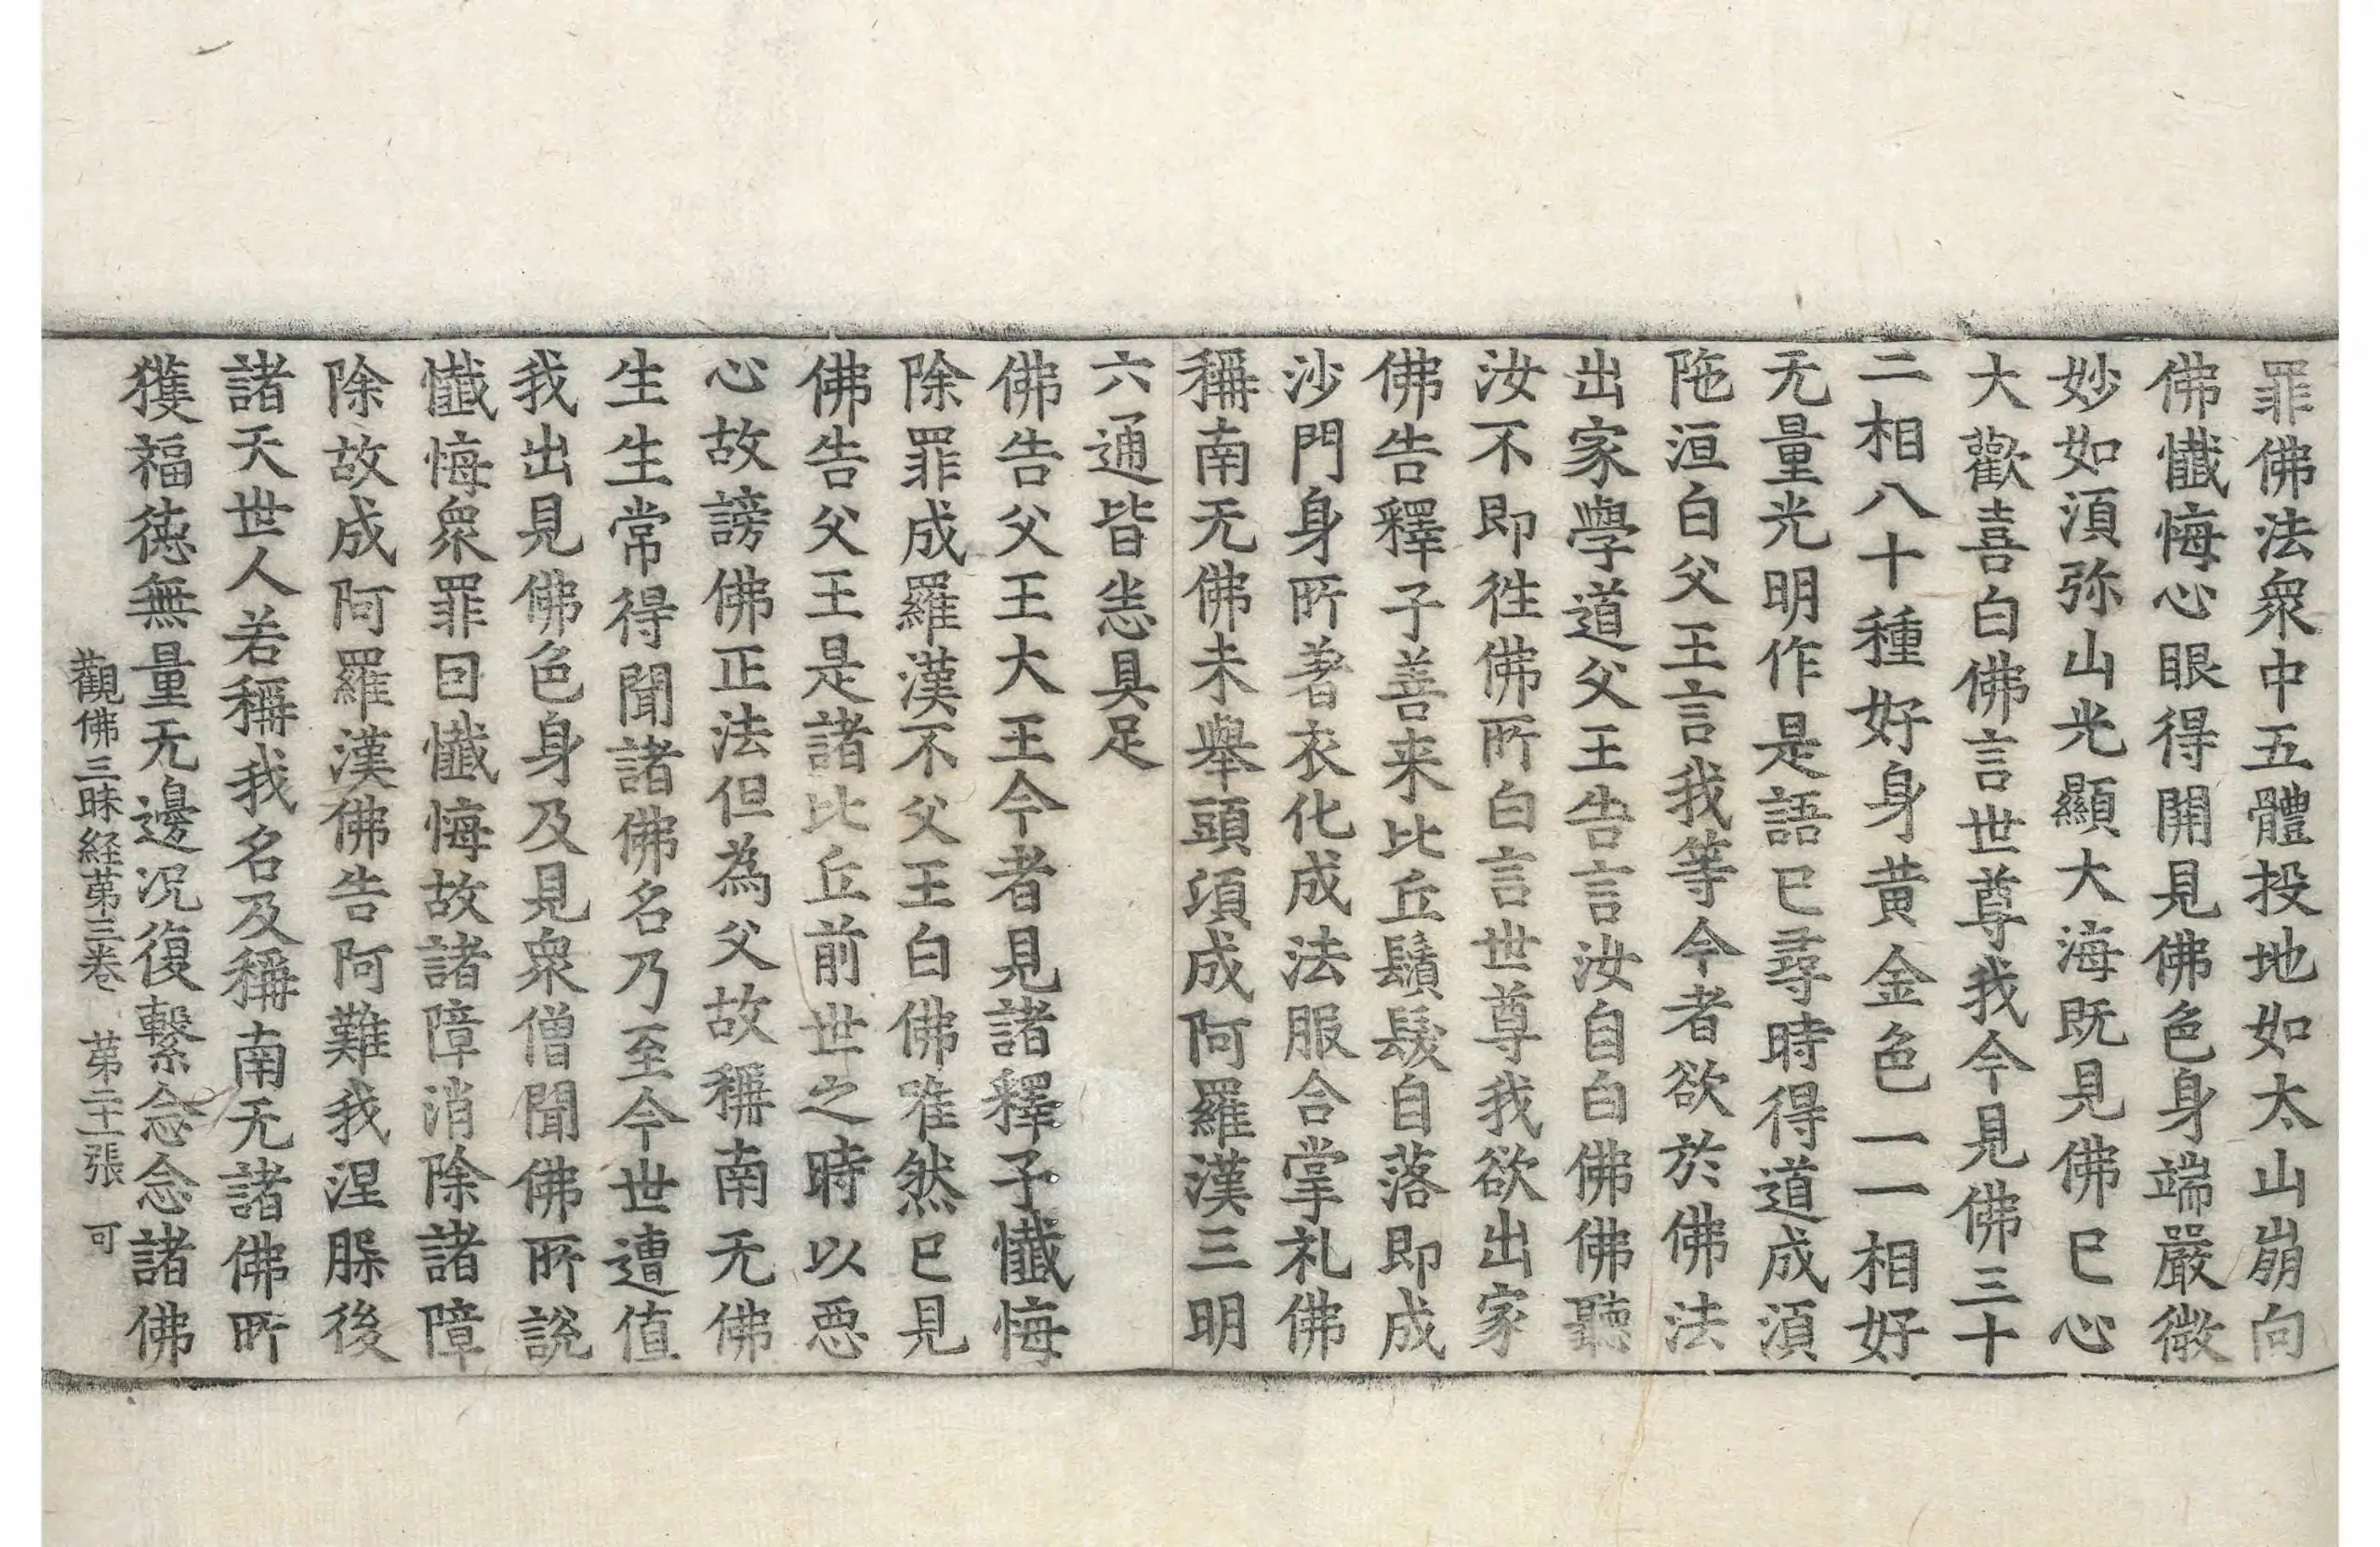 罪佛法衆中五體投地如太山崩向
佛懺悔心眼得開見佛色身端嚴微
妙如湏弥山光顯大海既見佛已心
大歡喜白佛言世尊我今見佛三十
二相八十種好身黄金色一一相好
无量光明作是語已尋時得道成湏
陁洹白父王言我等今者欲於佛法
出家學道父王告言汝自白佛佛聽
汝不即徃佛所白言世尊我欲出家
佛告釋子善来比丘鬚髮自落即成
沙門身所著衣化成法服合掌礼佛
稱南无佛未舉頭項成阿羅漢三明
六通皆悉具足
佛告父王大王今者見諸釋子懺悔
除罪成羅漢不父王白佛唯然已見
佛告父王是諸比丘前世之時以惡
心故謗佛正法但為父故稱南无佛
生生常得聞諸佛名乃至今世遭值
我出見佛色身及見衆僧聞佛所説
懺悔衆罪因懺悔故諸障消除諸障
除故成阿羅漢佛告阿難我涅槃後
諸天世人若稱我名及稱南无諸佛所
獲福徳無量无邊况復繫念念諸佛
觀佛三昧経苐三卷 苐二十一張 可